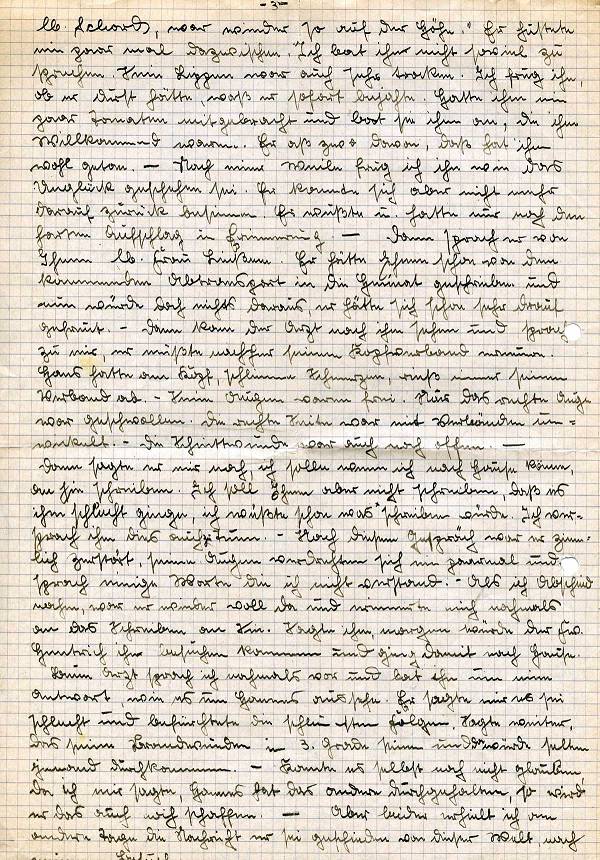 -3-
lb. Schorsch, war wieder so auf der Höhe." Er hustete
ein paar mal dazwischen. Ich bat ihn nicht soviel zu
sprechen. Seine Lippen war auch sehr trocken. Ich frug ihn,
ob er durst hätte, was er sofort bejahte. Hatte ihm ein
paar Tomaten mitgebracht und bot sie ihm an, die ihm
willkommend waren. Er aß zwo davon, daß hat ihm
wohl getan. — Nach einer weile frug ich ihn wie das
Unglück geschehen sei. Er konnte sich aber nicht mehr
darauf zurück besinnen. Er wußte u. hatte nur noch den
harten Aufschlag in Erinnerung. — Dann sprach er von
Ihnen lb. Frau. Er hätte Ihnen schon von dem
kommenden Abtransport in die Heimat geschrieben und
nun würde doch nichts daraus, er hätte sich schon sehr drauf
gefreut. - Dann kam der Arzt nach ihm sehen und sprach
zu mir, er müßte nachher seinen Kopfverband erneuern.
Hans hatte am Kopf, schlimme Schmerzen, riß immer seinen
Verband ab. - Seine Augen waren frei. Nur das rechte Auge
war geschwollen. Die rechte Seite war mit Verbänden um-
wickelt. - Die Schnittwunde war auch noch offen. —
Dann sagte er mir noch, ich solle wenn ich nach Hause käme,
an Sie schreiben. Ich soll Ihnen aber nicht schreiben, daß es
ihm schlecht ginge, ich wüßte schon was schreiben würde. Ich ver-
sprach ihm dies auch zu tun. - Nach diesem Gespräch war er ziem-
lich zerstört, seine Augen verdrehten sich ein paarmal und
sprach einige Worte die ich nicht verstand. - Als ich Abschied
nahm, war er wieder voll da und erinnerte mich nochmals
an das Schreiben an Sie. Sagte ihm, morgen würde der Fw.
ihn besuchen kommen und ging damit nach Hause.
Beim Arzt sprach ich nochmals vor und bat ihn um eine
Antwort, wie es um Hannes aussehe. Er sagte mir es sei
schlecht und befürchtete die schlimmsten Folgen. Sagte weiter,
das seine Brandwunden in 3. Grade seien und würde selten
jemand durchkommen. — Konnte es selbst noch nicht glauben,
da ich mir sagte, Hannes hat das andere durchgehalten, so wird
er das auch noch schaffen. — Aber leider erhielt ich am
andern Tage die Nachricht er sei geschieden von dieser Welt, nach